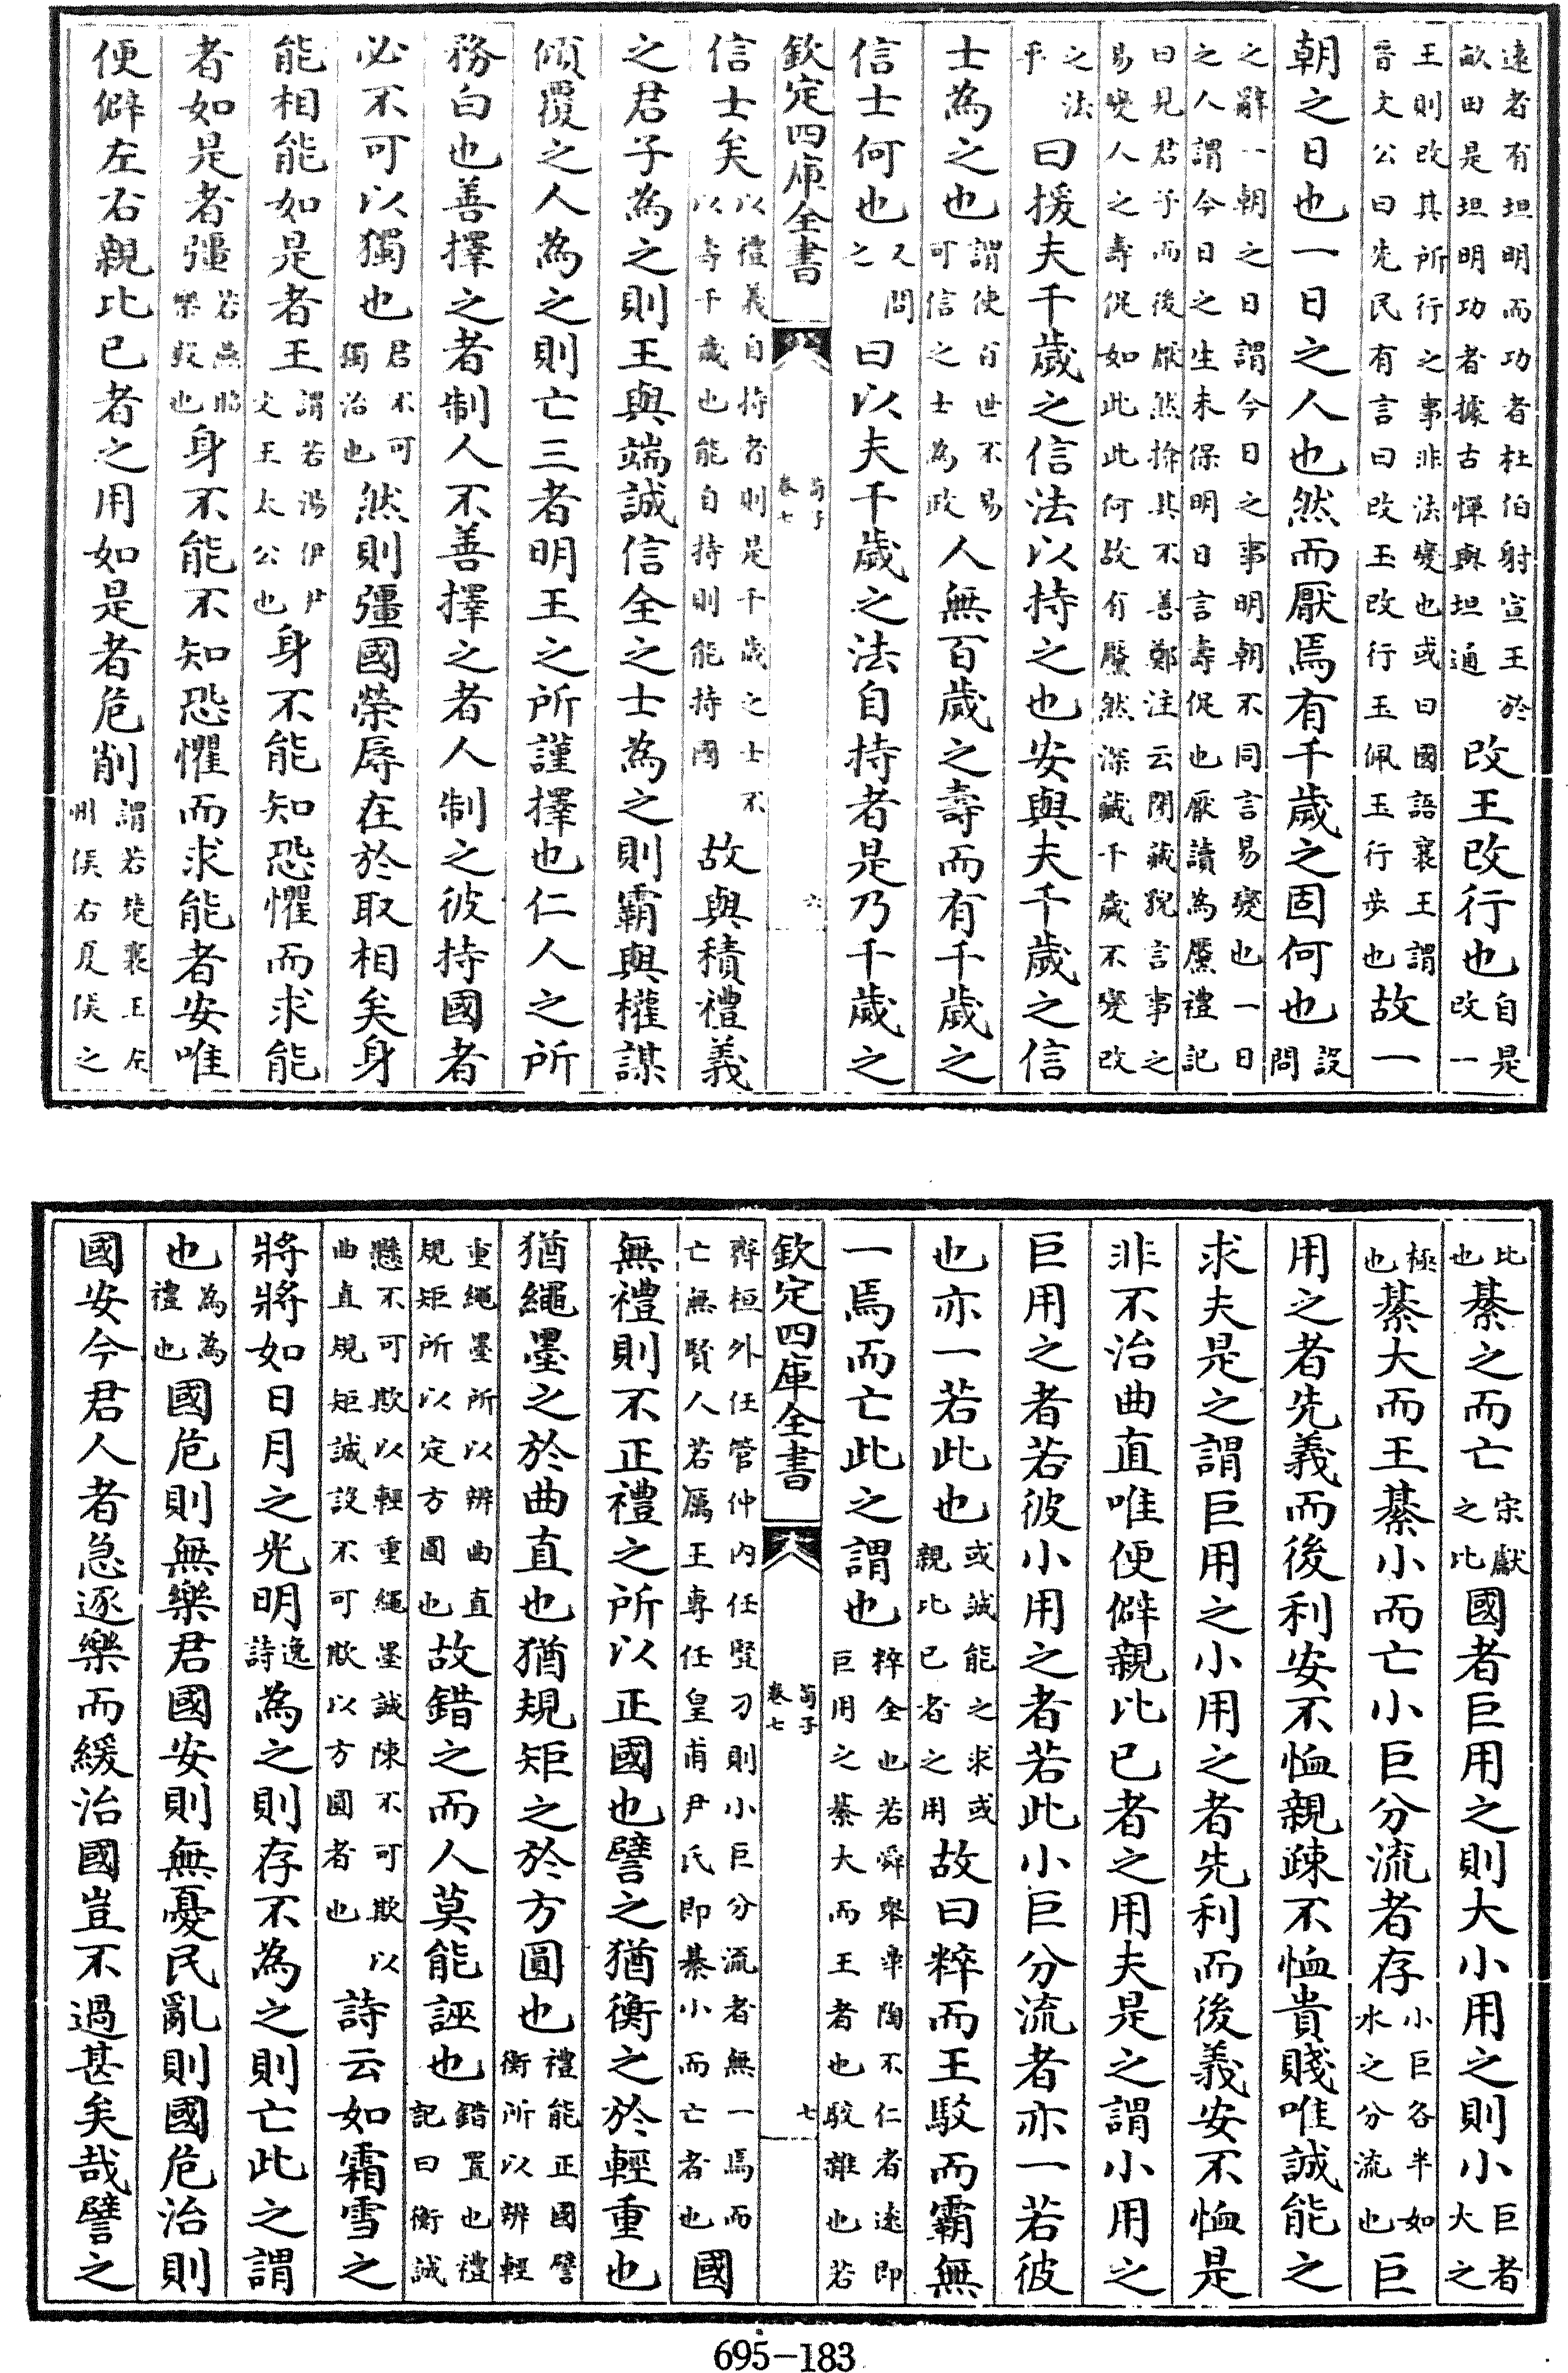 逺者有坦明而功者杜伯射宣王於畝田是坦明功者據古憚與坦通改王改行也自是改一
王則改其所行之事非法變也或曰國語襄王謂晉文公曰先民有言曰改玉改行玉佩玉行步也故一
朝之日也一日之人也然而厭焉有千歲之固何也設問
之辭一朝之日謂今日之事明朝不同言易變也一日之人謂今日之生未保明日言壽促也厭讀為黶禮記
曰見君子而後厭然揜其不善鄭注云閉藏貌言事之易變人之壽促如此此何故有黶然深藏千歲不變改
之法乎曰援夫千歲之信法以持之也安與夫千歲之信
士為之也謂使百世不易可信之士為政人無百歲之壽而有千歲之
信士何也又問之曰以夫千歲之法自持者是乃千歲之
欽定四庫全書 荀子 卷七 六
信士矣以禮義自持者則是千歲之士不以壽千歲也能自持則能持國故與積禮義
之君子為之則王與端誠信全之士為之則霸與權謀
傾覆之人為之則亡三者明王之所謹擇也仁人之所
務白也善擇之者制人不善擇之者人制之彼持國者
必不可以獨也君不可獨治也然則彊國榮辱在於取相矣身
能相能如是者王謂若湯伊尹文王太公也身不能知恐懼而求能
者如是者彊若燕昭樂毅也身不能不知恐懼而求能者安唯
便僻左右親比已者之用如是者危削謂若楚襄王左州侯右夏侯之
比也綦之而亡宋獻之比國者巨用之則大小用之則小巨者大之
極也綦大而王綦小而亡小巨分流者存小巨各半如水之分流也巨
用之者先義而後利安不恤親疎不恤貴賤唯誠能之
求夫是之謂巨用之小用之者先利而後義安不恤是
非不治曲直唯便僻親比已者之用夫是之謂小用之
巨用之者若彼小用之者若此小巨分流者亦一若彼
也亦一若此也或誠能之求或親比已者之用故曰粹而王駁而霸無
一焉而亡此之謂也粹全也若舜舉臯陶不仁者逺即巨用之綦大而王者也駁雜也若
欽定四庫全書 荀子 卷七 七
齊桓外任管仲内任豎刁則小巨分流者無一焉而亡無賢人若厲王專任皇甫尹氏即綦小而亡者也國
無禮則不正禮之所以正國也譬之猶衡之於輕重也
猶繩墨之於曲直也猶規矩之於方圓也禮能正國譬衡所以辨輕
重繩墨所以辨曲直規矩所以定方圓也故錯之而人莫能誣也錯置也禮記曰衡誠
懸不可欺以輕重繩墨誠陳不可欺以曲直規矩誠設不可欺以方圓者也詩云如霜雪之
將將如日月之光明逸詩為之則存不為之則亡此之謂
也為為禮也國危則無樂君國安則無憂民亂則國危治則
國安今君人者急逐樂而緩治國豈不過甚矣哉譬之
695-183